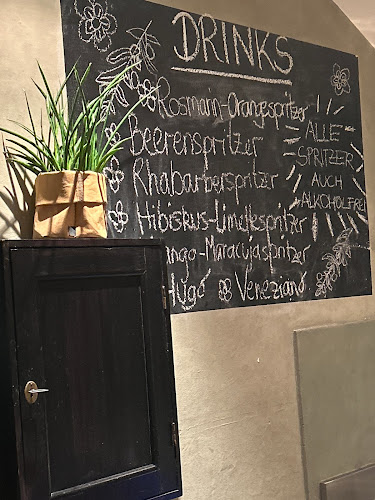 DRINKS
Rosmarin-Orangespritzer
Beerenspritzer
Rhabarberspritzer
Hibiskus-Limettespritzer
ango-Maracujaspritzer
Hugo Veneziano
ALLE
SPRITZER
AUCH
ALKOHOLFREI